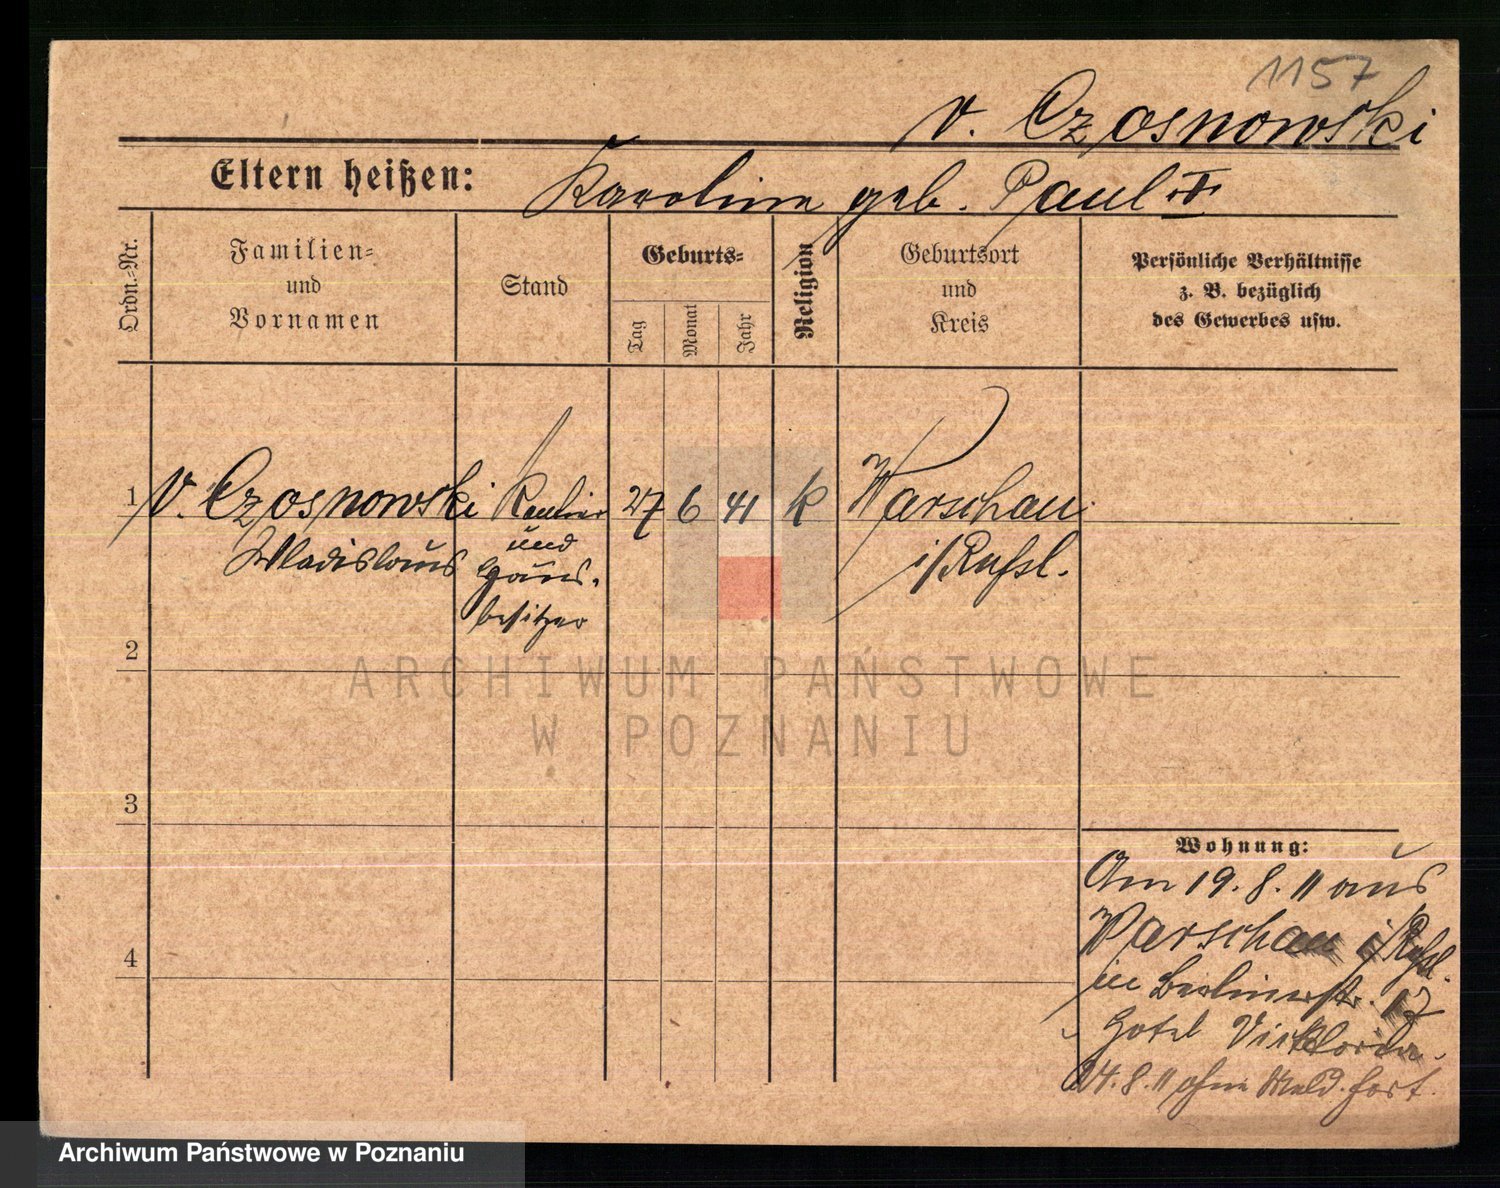 1157
v. Czosnowski
Eltern heißen: Karoline geb. Paul
Ordn.-Nr.
Familien-
und
Vornamen
Stand
Geburts-
Tag
Monat
Jahr
Religion
Geburtsort
und
Kreis
Persönliche Verhältnisse
z. B. bezüglich
des Gewerbes usw.
1 v. Czosnowski 27 6 41 k Warschau
Wladislaus und i/Russl.
Haus-
besitzer
2
3
4
Wohnung:
Am 19.8.11 aus
Warschau i/Russl.
in Berlinerstr. 17
Hotel Viktoria.
24.8.11 ohne Meld. fort.
ARCHIWUM PAŃSTWOWE
W POZNANIU
Archiwum Państwowe w Poznaniu